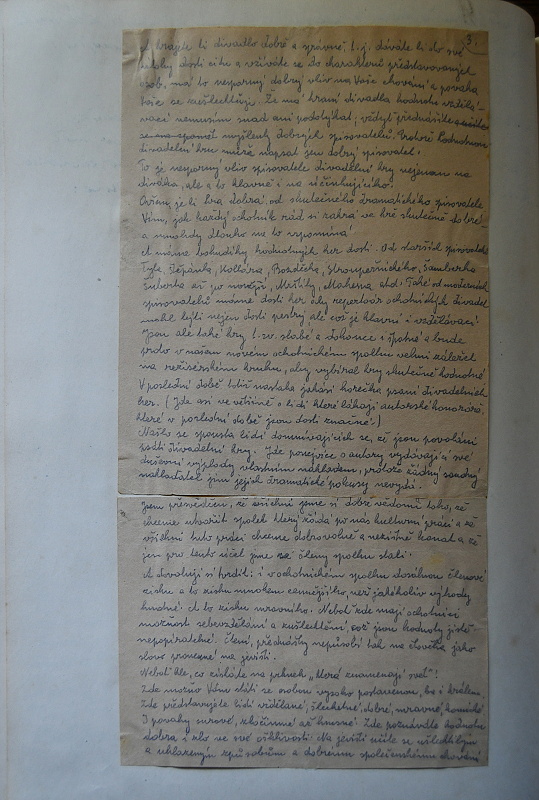 3.
A hrajete li divadlo dobře a správně, t. j. dáváte li do své
úlohy dosti citu a vžíváte se do charakterů představovaných
osob, má to nesporný dobrý vliv na Vaše chování a povaha
Vaše se zušlechťuje. Že má hraní divadla hodnotu vzdělá-
vací nemusím snad ani podotýkat; vždyť přednášíte
myšlenky dobrých spisovatelů. Vždyť hodnotnou
divadelní hru může napsat jen dobrý spisovatel!
To je nesporný vliv spisovatele divadelní hry nejenom na
diváka, ale a to hlavně i na účinkujícího!
Ovšem je li hra dobrá, od skutečného dramatického spisovatele
Vím, jak každý ochotník rád si zahrá ve hře skutečně dobré
a mnohdy dlouho na to vzpomíná!
A máme bohudíky hodnotných her dosti. Od starších spisovatelů
Tyla, Štěpánka, Kollára, Bozděcha, Stroupežnického, Šamberka
Šuberta až po novější, Mrštíky, Mahena atd. Také od moderních
spisovatelů máme dosti her aby repertoár ochotnických divadel
mohl býti nejen dosti pestrý ale což je hlavní i vzdělávací!
Jsou ale také hry t. zv. slabé a dokonce i špatné a bude
proto v našem novém ochotnickém spolku velmi záležeti
na režisérském kruhu, aby vybíral hry skutečně hodnotné
V poslední době totiž nastala jakási horečka psaní divadelních
her. (Jde asi ve většině o lidi které lákají autorské honoráře,
které v poslední době jsou dosti značné.)
Našlo se spousta lidí domnívajících se, že jsou povoláni
psáti divadelní hry. Jde ponejvíce o autory vydávající své
duševní výplody vlastním nákladem, protože žádný soudný
nakladatel jim jejich dramatické pokusy nevydá.
Jsem přesvědčen, že všichni jsme si dobře vědomi toho, že
chceme utvořit spolek který žádá po nás kulturní práci a že
všichni tuto práci chceme dobrovolně a nezištně konat a že
jen pro tento účel jsme se členy spolku stali.
A dovoluji si tvrdit: i v ochotnickém spolku dosáhnou členové
zisku a to zisku mnohem cennějšího, než jakékoliv výhody
hmotné. A to zisku mravního. Neboť zde mají ochotníci
možnost sebevzdělání a zušlechtění, což jsou hodnoty jistě
nepopiratelné. Čtení, přednášky nepůsobí tak na člověka jako
slovo pronesené na jevišti.
Neboť hle, co získáte na prknech „které znamenají svět“!
Zde možno Vám státi se osobou vysoko postavenou, ba i králem
Zde představujete lidi vzdělané, šlechetné, dobré, mravné, komické
I povahy surové, zločinné až hnusné! Zde poznáváte hodnotu
dobra i zlo ve své ošklivosti. Na jevišti učíte se ušlechtilým
a uhlazeným způsobům a dobrému společenskému chování